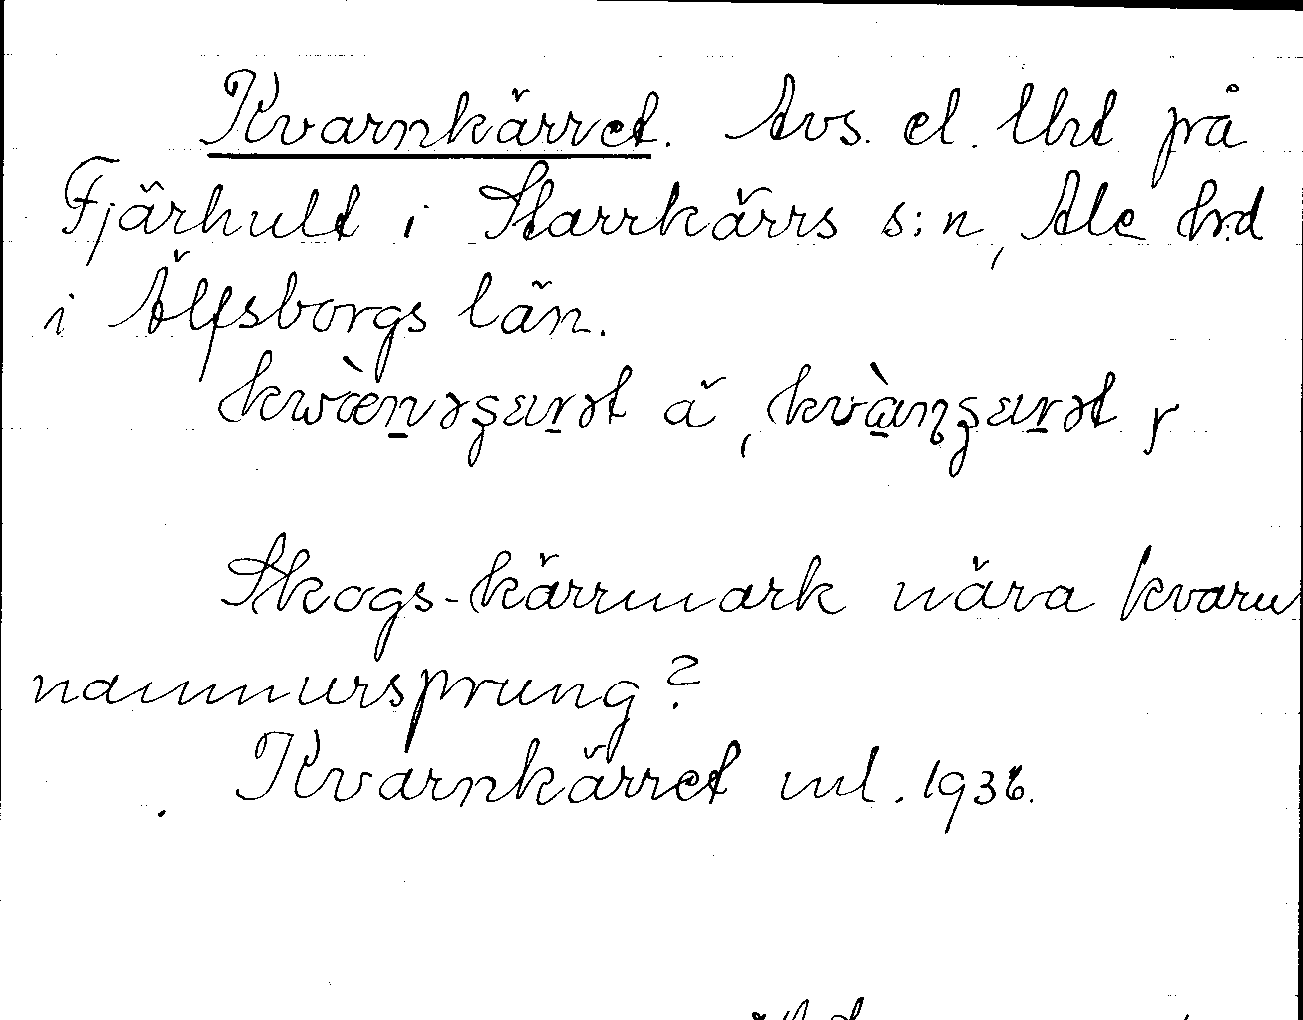 Kvarnkärret. Avs. el. lht på
Fjärhult i Starrkärrs s:n, Ale hrd
i Älfsborgs län.
ä,
Skogs-kärrmark nära kvarn
namnursprung?
Kvarnkärret ml. 1936.